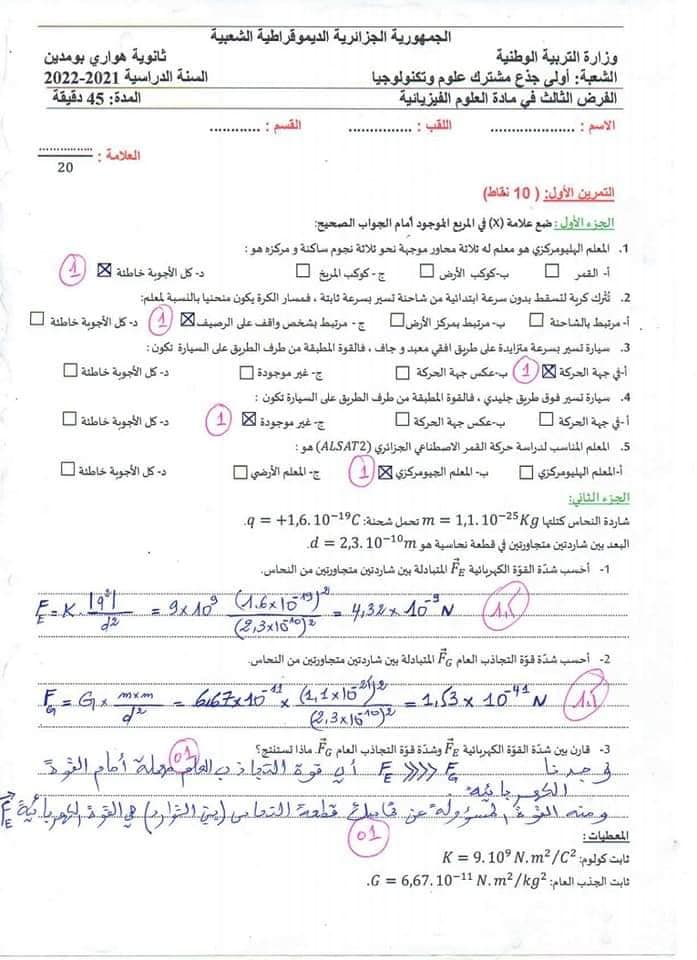 الجمهورية الجزائرية الديموقراطية الشعبية
وزارة التربية الوطنية ثانوية هواري بومدين
الشعبة: أولى جذع مشترك علوم وتكنولوجيا السنة الدراسية 2021-2022
الفرض الثالث في مادة العلوم الفيزيائية المدة: 45 دقيقة
الاسم : ..................... اللقب : ............... القسم : ............
العلامة : ............... / 20
التمرين الأول: ( 10 نقاط)
الجزء الأول: ضع علامة (X) في المربع الموجود أمام الجواب الصحيح:
1. المعلم الهليومركزي هو معلم له ثلاثة محاور موجهة نحو ثلاثة نجوم ساكنة و مركزه هو :
أ- القمر ☐ ب-كوكب الأرض ☐ ج - كوكب المريخ ☐ د- كل الأجوبة خاطئة ☒ 1
2. تُترك كرية لتسقط بدون سرعة ابتدائية من شاحنة تسير بسرعة ثابتة ، فمسار الكرة يكون منحنيا بالنسبة لمعلم:
أ- مرتبط بالشاحنة ☐ ب- مرتبط بمركز الأرض ☐ ج - مرتبط بشخص واقف على الرصيف ☒ 1 د- كل الأجوبة خاطئة ☐
3. سيارة تسير بسرعة متزايدة على طريق افقي معبد و جاف ، فالقوة المطبقة من طرف الطريق على السيارة تكون :
أ-في جهة الحركة ☒ 1 ب-عكس جهة الحركة ☐ ج- غير موجودة ☐ د- كل الأجوبة خاطئة ☐
4. سيارة تسير فوق طريق جليدي ، فالقوة المطبقة من طرف الطريق على السيارة تكون :
أ-في جهة الحركة ☐ ب-عكس جهة الحركة ☐ ج- غير موجودة ☒ 1 د- كل الأجوبة خاطئة ☐
5. المعلم المناسب لدراسة حركة القمر الاصطناعي الجزائري (ALSAT2) هو :
أ-المعلم الهليومركزي ☐ ب- المعلم الجيومركزي ☒ 1 ج- المعلم الأرضي ☐ د- كل الأجوبة خاطئة ☐
الجزء الثاني:
شاردة النحاس كتلتها m = 1,1. 10⁻²⁵Kg تحمل شحنة: q = +1,6. 10⁻¹⁹C.
البعد بين شاردتين متجاورتين في قطعة نحاسية هو d = 2,3. 10⁻¹⁰m.
1- أحسب شدّة القوّة الكهربائية F⃗E المتبادلة بين شاردتين متجاورتين من النحاس.
FE = K . |q²| / d² = 9 x 10⁹ (1.6 x 10⁻¹⁹)² / (2,3 x 10⁻¹⁰)² = 4,32 x 10⁻⁹ N 1.5
2- أحسب شدّة قوّة التجاذب العام F⃗G المتبادلة بين شاردتين متجاورتين من النحاس.
FG = G x m x m / d² = 6,67 x 10⁻¹¹ x (1,1 x 10⁻²⁵)² / (2,3 x 10⁻¹⁰)² = 1,53 x 10⁻⁴¹ N 1.5
3- قارن بين شدّة القوّة الكهربائية F⃗E وشدة قوّة التجاذب العام F⃗G. ماذا تستنتج؟
01
وجدنا FE >>>> FG أي قوة التجاذب العام مهملة أمام القوة
الكهربائية.
ومنه القوة المسؤولة عن تماسك قطعة النحاس (بين الشوارد) هي القوة الكهربائية F⃗E
01
المعطيات :
ثابت كولوم: K = 9. 10⁹ N. m²/C²
ثابت الجذب العام: G = 6,67. 10⁻¹¹ N. m²/kg².